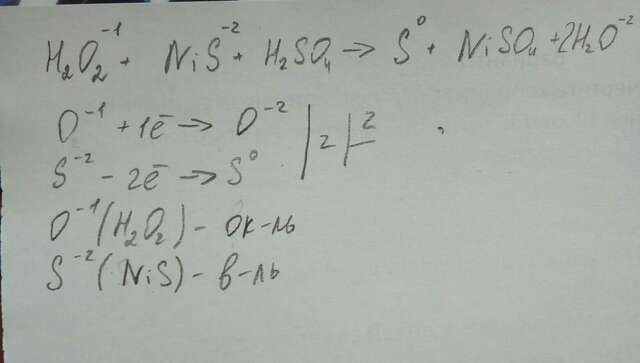 H₂O₂⁻¹ + NiS⁻² + H₂SO₄ → S⁰ + NiSO₄ + 2H₂O⁻²
O⁻¹ + 1ē → O⁻² | 2 | 2
S⁻² - 2ē → S⁰
O⁻¹ (H₂O₂) - ок-ль
S⁻² (NiS) - в-ль